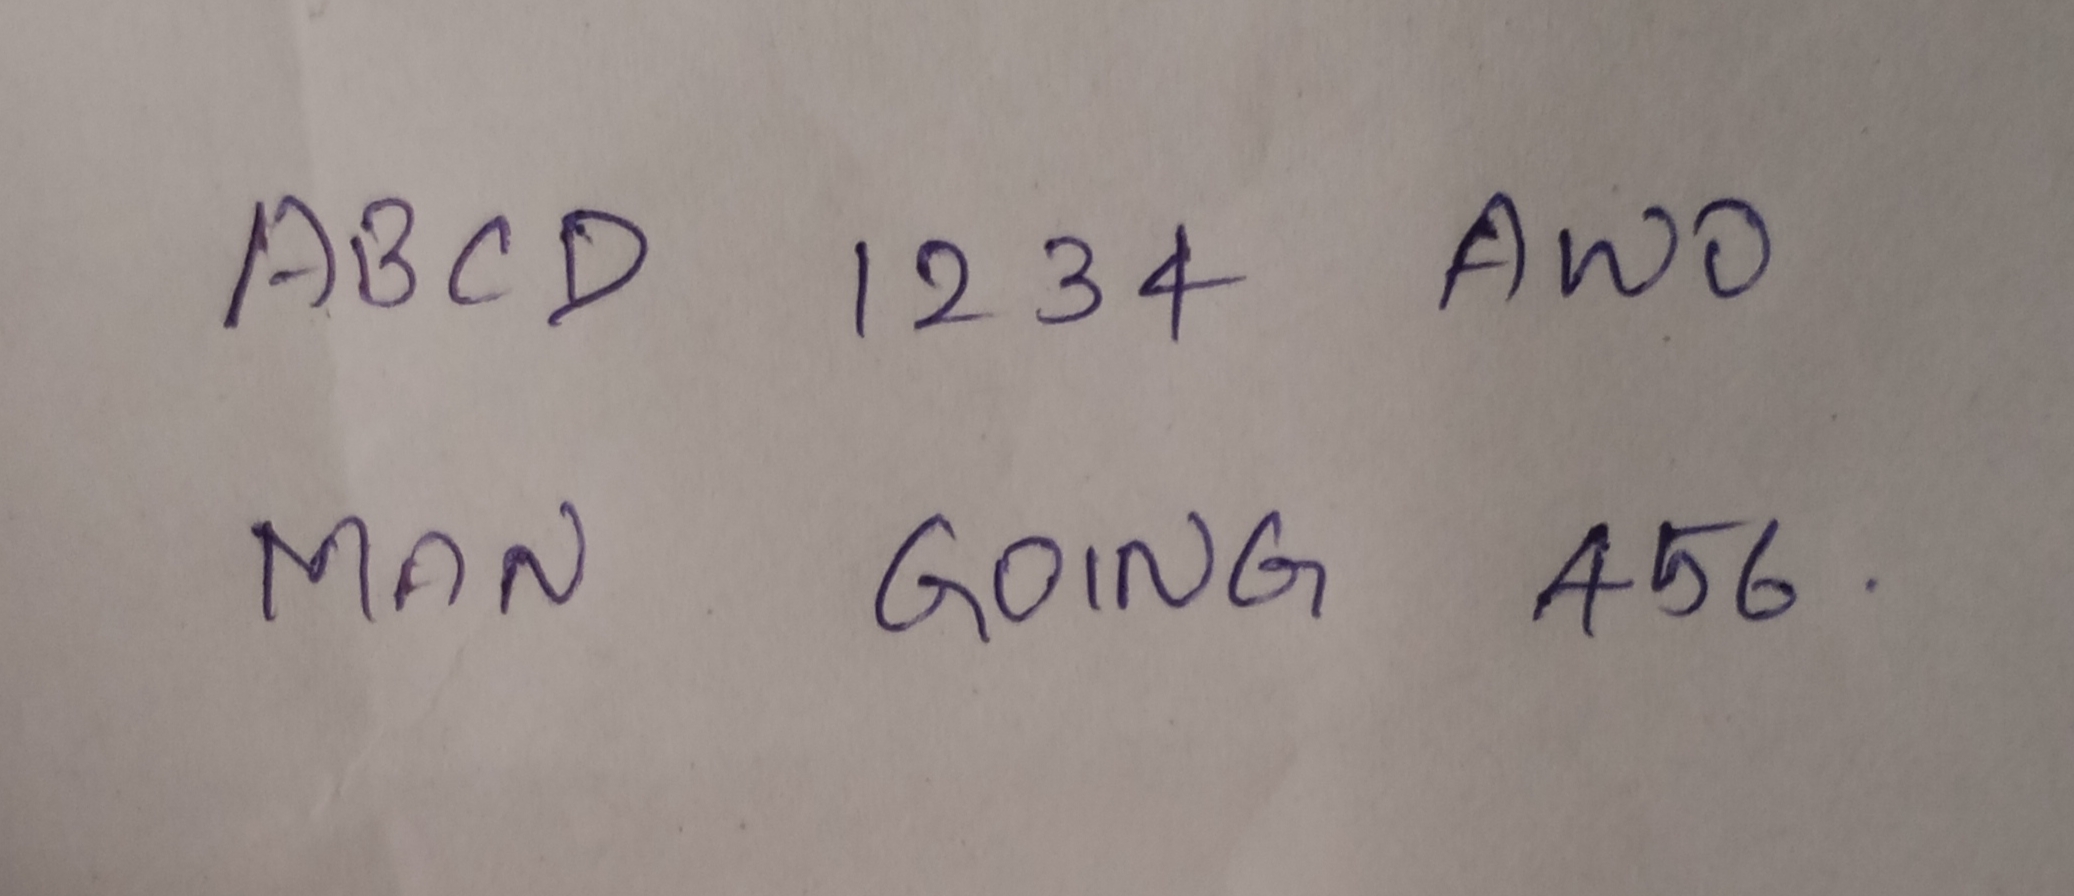 ABCD 1234 AWO
MAN GOING 456.